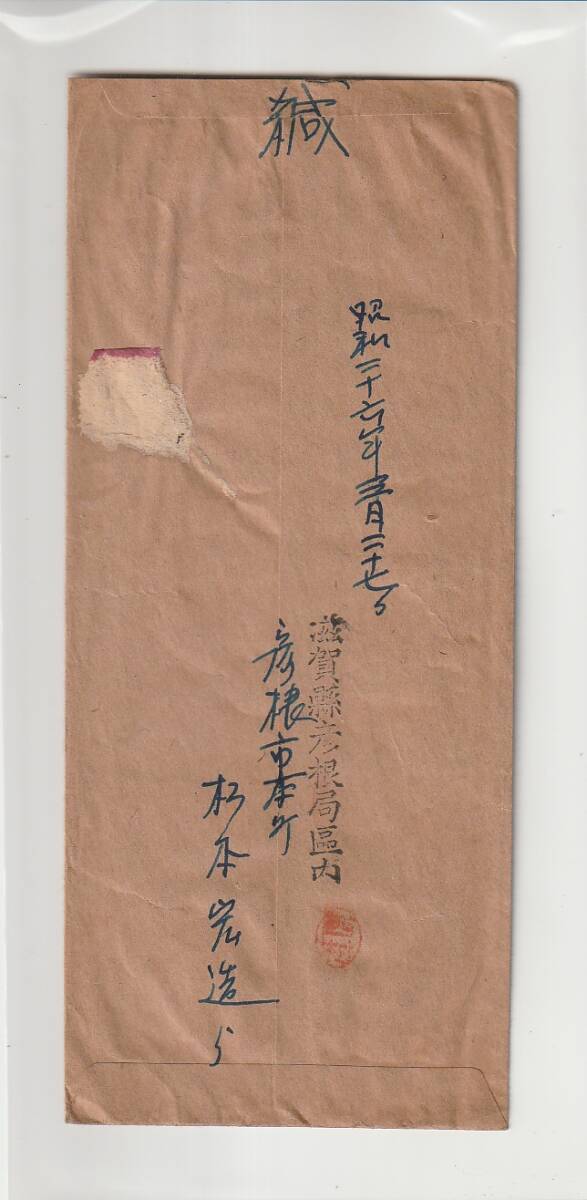 緘
昭和二十六年三月二十七日
滋賀縣彦根局區内
彦根市本町
松本岩造